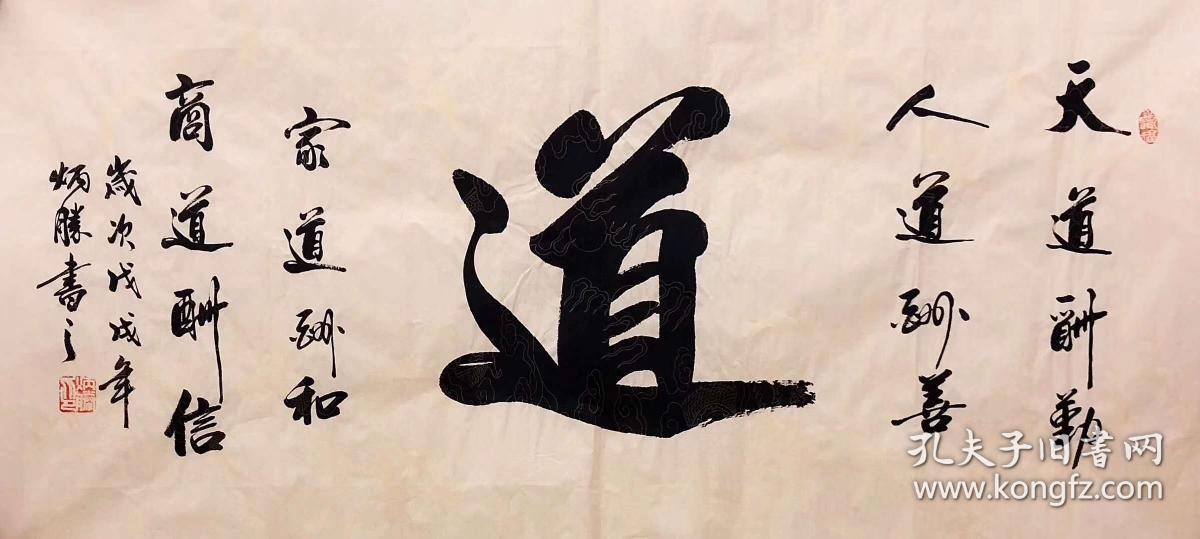 天道酬勤
人道酬善
道
家道酬和
商道酬信
歲次戊戌年
炳勝書之
孔夫子旧書网
www.kongfz.com